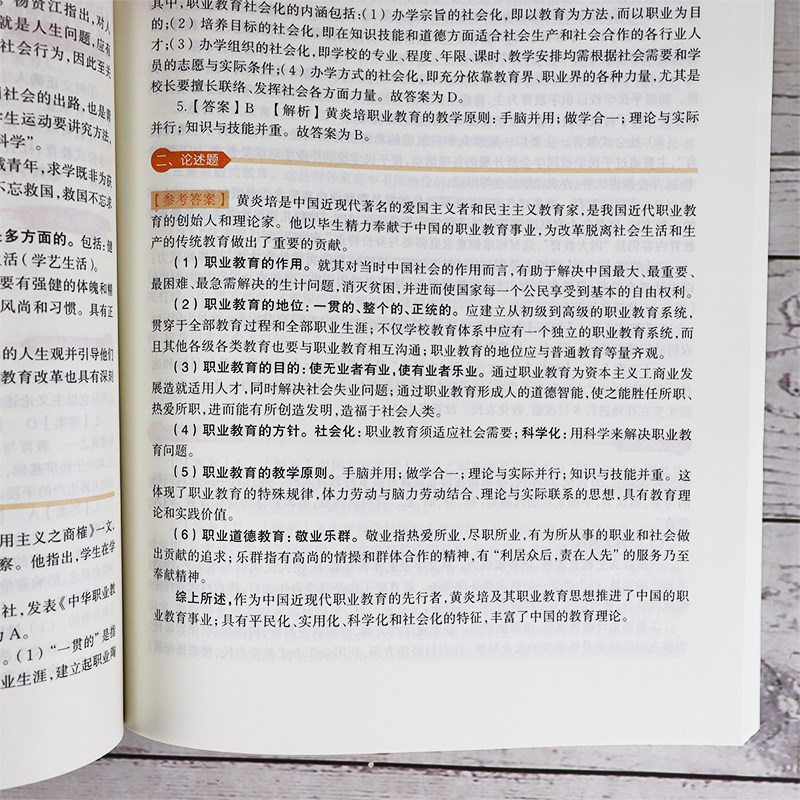 杨贤江指出,对人
就是人生问题,应有
社会行为,因此至关
社会的出路,也是青
学生运动要讲究方法,
科学”。
青年,求学既非为
不忘救国,救国不忘求
多方面的。包括:健
生活(学艺生活)。
要有强健的体魄和精
风尚和习惯。具有正
的人生观并引导他们
教育改革也具有深刻
用主义之商榷》一文,
察。他指出,学生在学
社,发表《中华职业教
A。
。(1)“一贯的”是指
业生涯,建立起职业陶
其中,职业教育社会化的内涵包括:(1)办学宗旨的社会化,即以教育为方法,而以职业为目
的;(2)培养目标的社会化,即在知识技能和道德方面适合社会生产和社会合作的各行业人
才;(3)办学组织的社会化,即学校的专业、程度、年限、课时、教学安排均需根据社会需要和学
员的志愿与实际条件;(4)办学方式的社会化,即充分依靠教育界、职业界的各种力量,尤其是
校长要擅长联络、发挥社会各方面力量。故答案为D。
5.【答案】B 【解析】黄炎培职业教育的教学原则:手脑并用;做学合一;理论与实际
并行;知识与技能并重。故答案为B。
二、论述题
【参考答案】 黄炎培是中国近现代著名的爱国主义者和民主主义教育家,是我国近代职业教
育的创始人和理论家。他以毕生精力奉献于中国的职业教育事业,为改革脱离社会生活和生
产的传统教育做出了重要的贡献。
(1)职业教育的作用。就其对当时中国社会的作用而言,有助于解决中国最大、最重要、
最困难、最急需解决的生计问题,消灭贫困,并进而使国家每一个公民享受到基本的自由权利。
(2)职业教育的地位:一贯的、整个的、正统的。应建立从初级到高级的职业教育系统,
贯穿于全部教育过程和全部职业生涯;不仅学校教育体系中应有一个独立的职业教育系统,而
且其他各级各类教育也要与职业教育相互沟通;职业教育的地位应与普通教育等量齐观。
(3)职业教育的目的:使无业者有业,使有业者乐业。通过职业教育为资本主义工商业发
展造就适用人才,同时解决社会失业问题;通过职业教育形成人的道德智能,使之能胜任所职、
热爱所职,进而能有所创造发明,造福于社会人类。
(4)职业教育的方针。社会化:职业教育须适应社会需要;科学化:用科学来解决职业教
育问题。
(5)职业教育的教学原则。手脑并用;做学合一;理论与实际并行;知识与技能并重。这
体现了职业教育的特殊规律,体力劳动与脑力劳动结合、理论与实际联系的思想,具有教育理
论和实践价值。
(6)职业道德教育:敬业乐群。敬业指热爱所业,尽职所业,有为所从事的职业和社会做
出贡献的追求;乐群指有高尚的情操和群体合作的精神,有“利居众后,责在人先”的服务乃至
奉献精神。
综上所述,作为中国近现代职业教育的先行者,黄炎培及其职业教育思想推进了中国的职
业教育事业;具有平民化、实用化、科学化和社会化的特征,丰富了中国的教育理论。